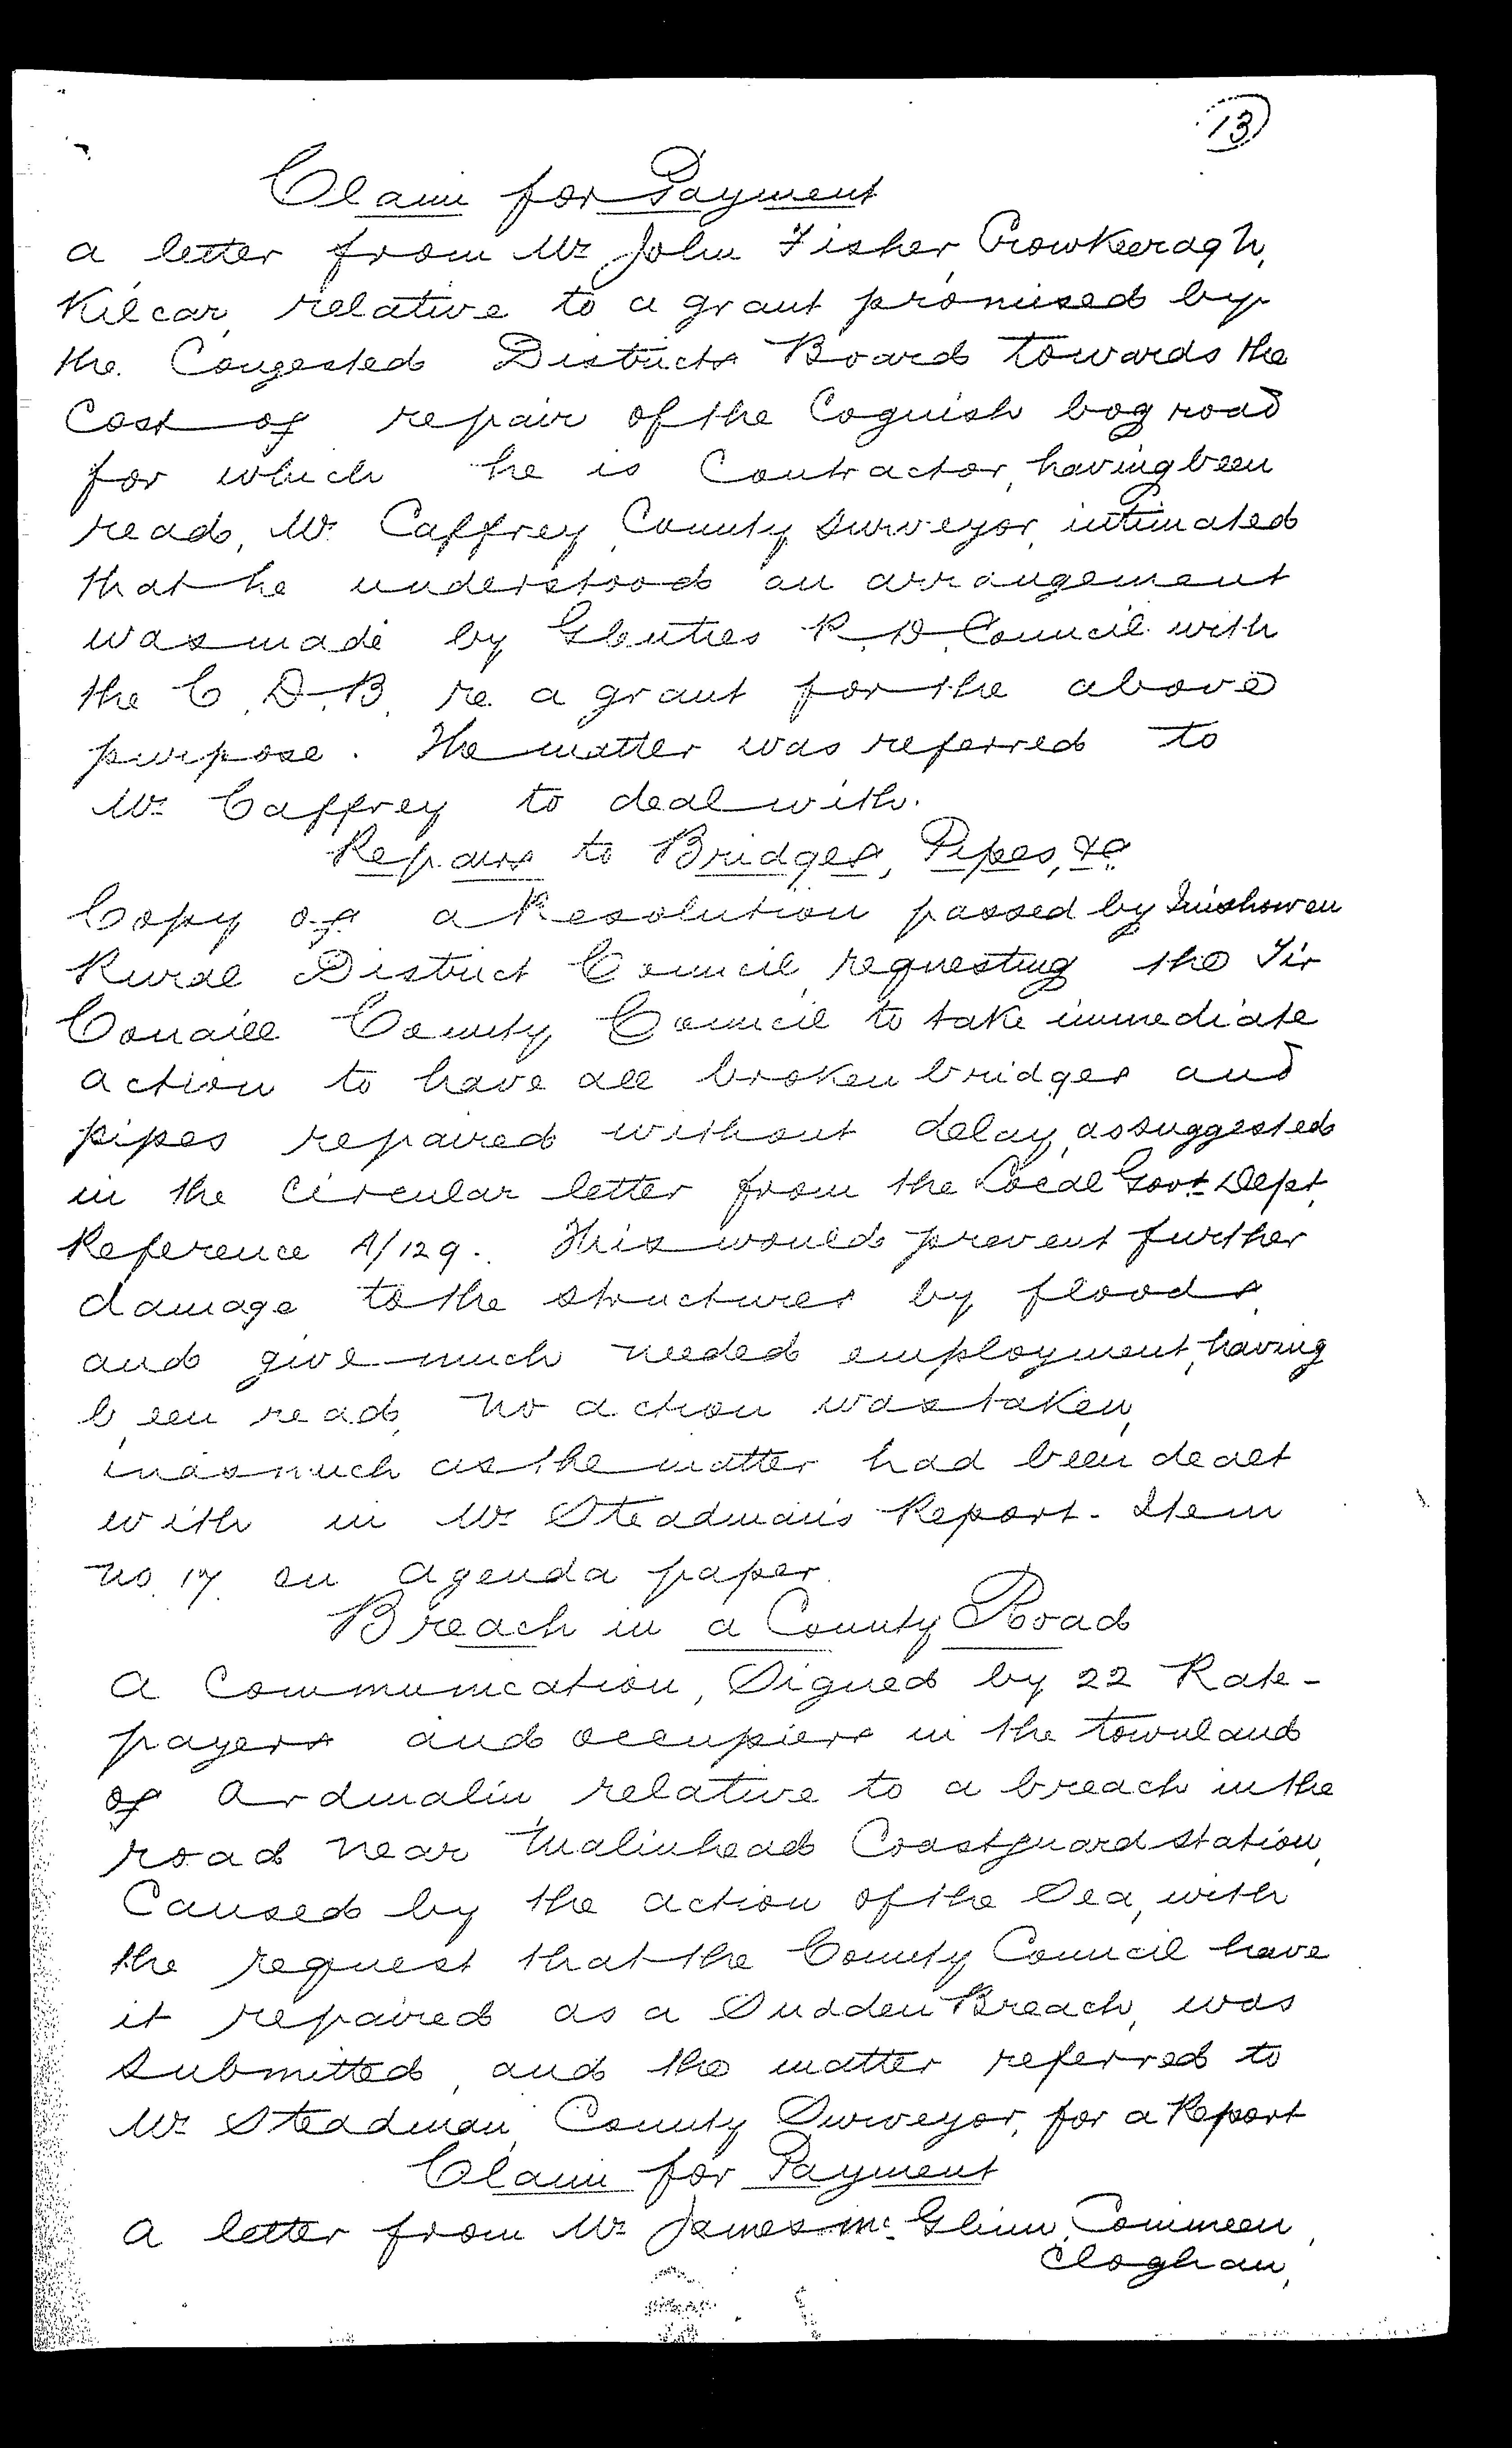 13
Claim for Payment
a letter from Mr John Fisher, Crowkeeragh,
Kilcar, relative to a grant promised by
the Congested Districts Board towards the
Cost of repair of the Coguish bog road
for which he is Contractor, having been
read, Mr Caffrey, County Surveyor, intimated
that he understood an arrangement
was made by Glenties R. D. Council with
the C. D. B. re a grant for the above
purpose. The matter was referred to
Mr Caffrey to deal with.
Repairs to Bridges, Pipes, &c
Copy of a Resolution passed by Inishowen
Rural District Council, requesting the Tir
Conaill County Council to take immediate
action to have all broken bridges and
pipes repaired without delay, as suggested
in the Circular letter from the Local Govt. Dept.
Reference A/129. This would prevent further
damage to the structures by floods,
and give much needed employment, having
been read, no action was taken,
inasmuch as the matter had been dealt
with in Mr Steadman's Report - Item
no. 17. on agenda paper.
Breach in a County Road
A Communication, Signed by 22 Rate-
payers and occupiers in the townland
of Ardmalin, relative to a breach in the
road near Malinhead Coastguard Station,
Caused by the action of the Sea, with
the request that the County Council have
it repaired as a Sudden Breach, was
Submitted, and the matter referred to
Mr Steadman, County Surveyor, for a Report
Claim for Payment
A letter from Mr James Mc. Glinn, Commeen,
Cloghan,